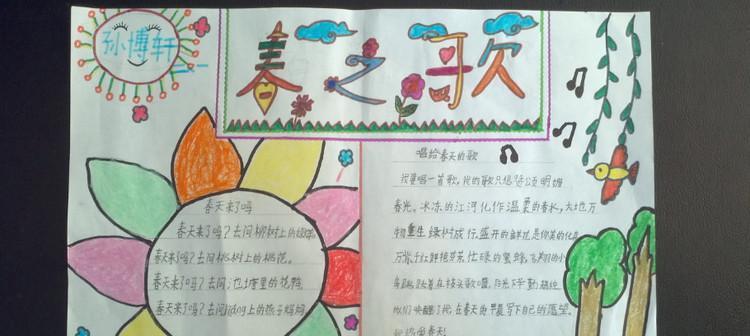 孙博轩
春之歌
春天来了吗
春天来了吗?去问柳树上的
春天来了吗?去问桃树上的桃花。
春天来了吗?去问池塘里的
春天来了吗?去问 上的燕子妈妈
唱给春天的歌
我要唱一首歌,我的歌只想 颂明媚
春光。冰冻的江河化作温柔的春水,大地万
物重生绿树成行,盛开的鲜花是你美的化身
万紫千红 忙碌的蜜蜂,飞翔的小
鸟 在枝头歌唱,阳光下
唤醒了我,在春天的早晨写下自己的愿望。
春天!